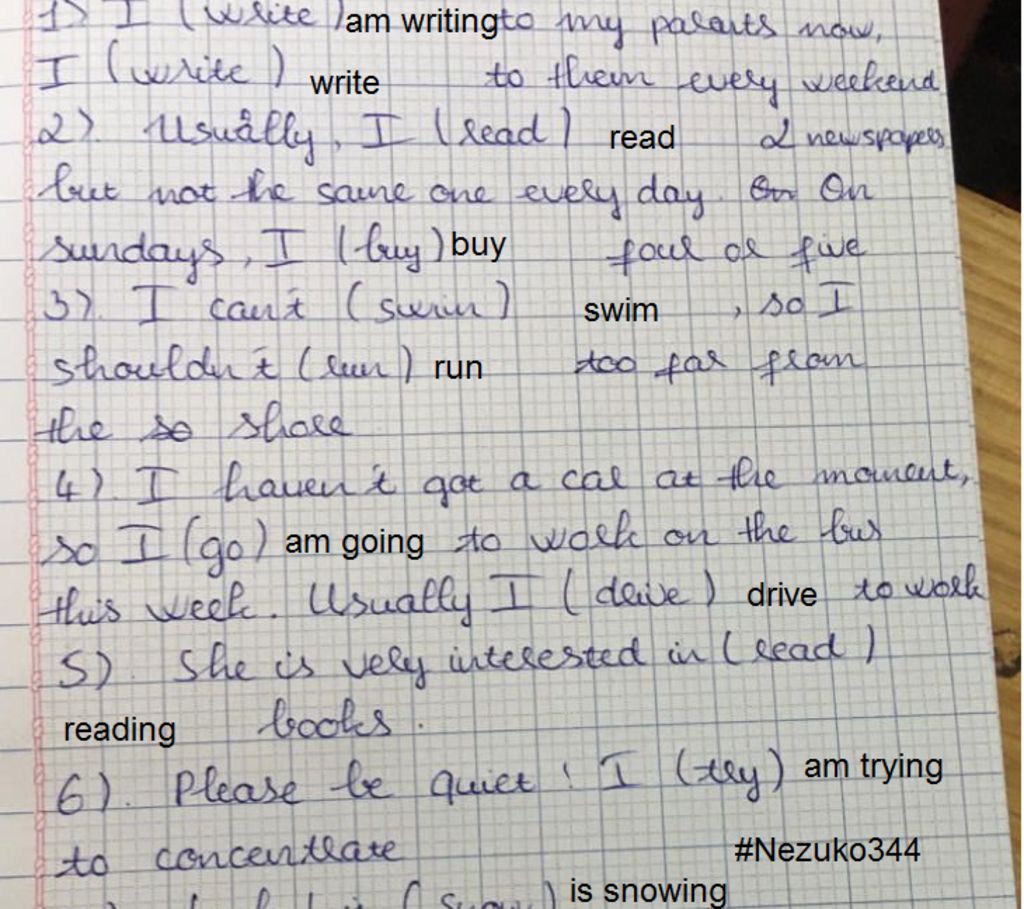 1) I (write) am writing to my parents now,
I (write) write to them every weekend
2). Usually, I (read) read 2 newspapers
but not he same one every day. On On
sundays, I (buy) buy four or five
3). I can't (swim) swim, so I
shouldn't (run) run too far from
the so shore
4). I haven't got a car at the moment,
so I (go) am going to work on the bus
this week. Usually I (drive) drive to work
5). She is very interested in (read)
reading books.
6). Please be quiet! I (try) am trying
to concentrate
#Nezuko344
(snow) is snowing